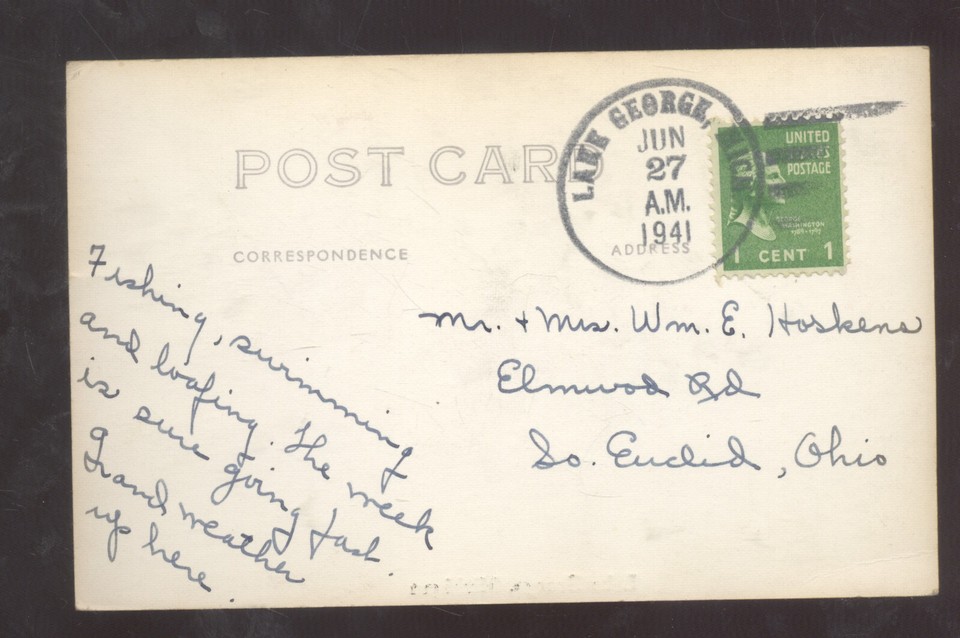 POST CARD
LAKE GEORGE, MICH.
JUN
27
A.M.
1941
UNITED
STATES
POSTAGE
GEORGE
WASHINGTON
1789-1797
1 CENT 1
CORRESPONDENCE
ADDRESS
Fishing, swimming
and loafing. The week
is sure going fast.
Grand weather
up here
Mr. + Mrs. Wm. E. Hoskens
Elmwood Rd
So. Euclid, Ohio